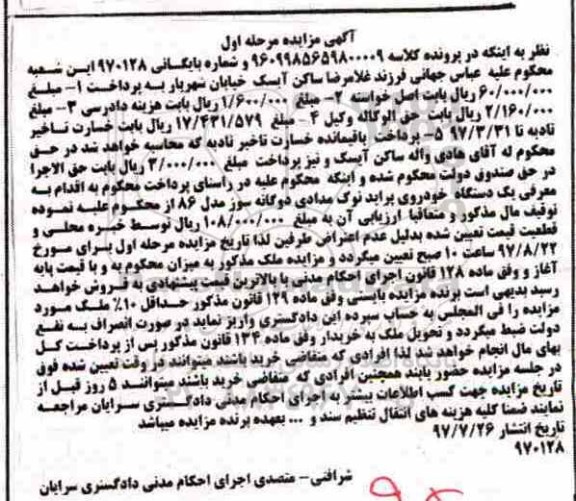 آگهی مزایده مرحله اول
نظر به اینکه در پرونده کلاسه ۹۶۰۹۹۸۵۶۵۹۸۰۰۰۰۹ و شماره بایگانی ۹۷۰۱۲۸ این شعبه
محکوم علیه عباس جهانی فرزند غلامرضا ساکن آیسک خیابان شهریار به پرداخت ۱- مبلغ
۶۰/۰۰۰/۰۰۰ ریال بابت اصل خواسته ۲- مبلغ ۱/۶۰۰/۰۰۰ ریال بابت هزینه دادرسی ۳- مبلغ
۲/۱۶۰/۰۰۰ ریال بابت حق الوکاله وکیل ۴- مبلغ ۱۷/۴۳۱/۵۷۹ ریال بابت خسارت تاخیر
تادیه تا ۹۷/۳/۳۱ ۵- پرداخت باقیمانده خسارت تاخیر تادیه که محاسبه خواهد شد در حق
محکوم له آقای هادی واله ساکن آیسک و نیز پرداخت مبلغ ۳/۰۰۰/۰۰۰ ریال بابت حق الاجرا
در حق صندوق دولت محکوم شده و اینکه محکوم علیه در راستای پرداخت محکوم به اقدام به
معرفی یک دستگاه خودروی پراید نوک مدادی دوگانه سوز مدل ۸۶ از محکوم علیه نموده
توقیف مال مذکور و متعاقبا ارزیابی آن به مبلغ ۱۰۸/۰۰۰/۰۰۰ ریال توسط خبره محلی و
قطعیت قیمت تعیین شده بدلیل عدم اعتراض طرفین لذا تاریخ مزایده مرحله اول برای مورخ
۹۷/۸/۲۲ ساعت ۱۰ صبح تعیین میگردد و مزایده ملک مذکور به میزان محکوم به و با قیمت پایه
آغاز و وفق ماده ۱۲۸ قانون اجرای احکام مدنی با بالاترین قیمت پیشنهادی به فروش خواهد
رسید بدیهی است برنده مزایده بایستی وفق ماده ۱۲۹ قانون مذکور حداقل ۱۰٪ ملک مورد
مزایده را فی المجلس به حساب سپرده این دادگستری واریز نماید در صورت انصراف به نفع
دولت ضبط میگردد و تحویل ملک به خریدار وفق ماده ۱۳۴ قانون مذکور پس از پرداخت کل
بهای مال انجام خواهد شد لذا افرادی که متقاضی خرید باشند میتوانند در وقت تعیین شده فوق
در جلسه مزایده حضور یابند همچنین افرادی که متقاضی خرید باشند میتوانند ۵ روز قبل از
تاریخ مزایده جهت کسب اطلاعات بیشتر به اجرای احکام مدنی دادگستری سرایان مراجعه
نمایند ضمنا کلیه هزینه های انتقال تنظیم سند و ... بعهده برنده مزایده میباشد
تاریخ انتشار ۹۷/۷/۲۶
۹۷۰۱۲۸
شرافتی - متصدی اجرای احکام مدنی دادگستری سرایان